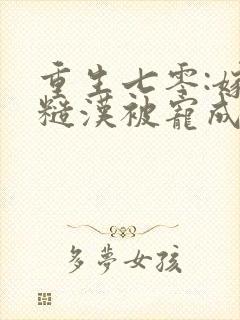 重生七零:嫁
糙漢被寵成
多夢女孩